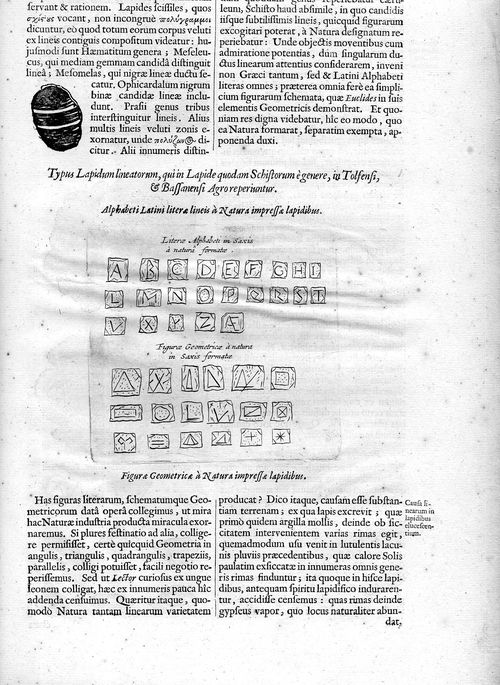 servant & rationem. Lapides scissiles, quos
σχίςους vocant, non incongruè πολύγραμμοι
dicuntur, eò quòd totum eorum corpus veluti
ex lineis contiguis compositum videatur: hu-
jusmodi sunt Hæmatitum genera; Meseleu-
cus, qui mediam gemmam candidâ distinguit
lineâ; Mesomelas, qui nigrâ lineæ ductu se-
catur. Ophicardalum nigrum
binæ candidæ lineæ inclu-
dunt. Prasii genus tribus
interstinguitur lineis. Alius
multis lineis veluti zonis e-
xornatur, unde di-
citur. Alii innumeris distin-
leum, Schisto haud absimile, in quo candidis
iisque subtilissimis lineis, quicquid figurarum
excogitari poterat, à Natura designatum re-
periebatur: Unde objectis moventibus cum
admiratione potentias, dum singularum du-
ctus linearum attentius considerarem, inveni
non Græci tantum, sed & Latini Alphabeti
literas omnes; præterea omnia ferè ea simpli-
cium figurarum schemata, quæ Euclides in suis
elementis Geometricis demonstrat. Et quo-
niam res digna videbatur, hîc eo modo, quo
ea Natura formarat, separatim exempta, ap-
ponenda duxi.
Typus Lapidum lineatorum, qui in Lapide quodam Schistorum è genere, in Tolfensi,
& Bassanensi Agro reperiuntur.
Alphabeti Latini literæ lineis à Natura impressæ lapidibus.
Literæ Alphabeti in Saxis
à naturâ formatæ.
A B C D E F G H I
L M N O P Q R S T
V X Y Z Æ
Figuræ Geometricæ à naturâ
in Saxis formatæ
Figuræ Geometricæ à Natura impressæ lapidibus.
Has figuras literarum, schematumque Geo-
metricorum datâ operâ collegimus, ut mira
hac Naturæ industria producta miracula exor-
naremus. Si plures festinatio ad alia, collige-
re permisisset, certè quicquid Geometria in
angulis, triangulis, quadrangulis, trapeziis,
parallelis, colligi potuisset, facili negotio re-
perissemus. Sed ut Lector curiosus ex ungue
leonem colligat, hæc ex innumeris pauca hîc
addenda censuimus. Quæritur itaque, quo-
modò Natura tantam linearum varietatem
producat? Dico itaque, causam esse substan-
tiam terrenam; ex qua lapis excrevit; quæ
primò quidem argilla mollis, deinde ob sic-
citatem intervenientem varias rimas egit,
quemadmodum usu venit in lutulentis lacu-
nis pluviis præcedentibus, quæ calore Solis
paulatim exsiccatæ in innumeras omnis gene-
ris rimas finduntur; ita quoque in hisce lapi-
dibus, antequam spiritu lapidifico induraren-
tur, accidisse censemus: quas rimas deinde
gypseus vapor, quo locus naturaliter abun-
dat,
Causa li-
nearum in
lapidibus